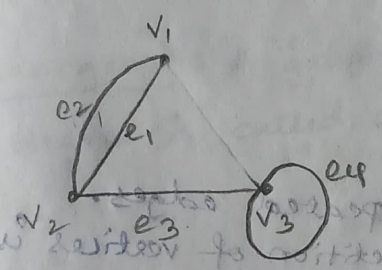 V1
e2
e1
e4
V2
e3
V3